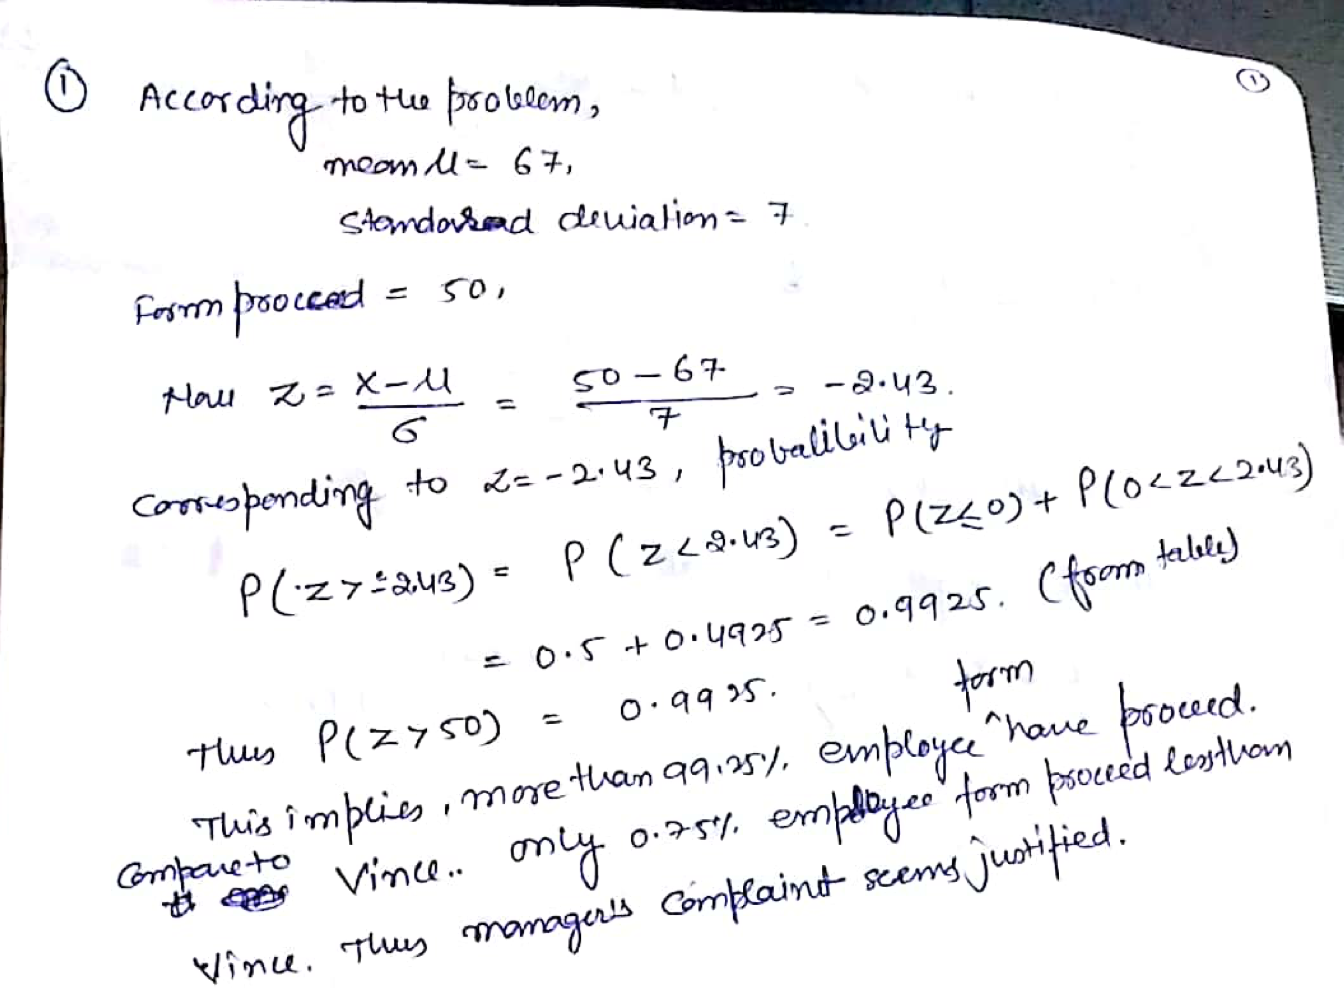 ① According to the problem, ①
mean μ = 67,
Standard deviation = 7
Form proceed = 50,
Now Z = X-μ/σ = 50-67/7 = -2.43.
Corresponding to Z=-2.43, probalibility
P(Z>-2.43) = P(Z<2.43) = P(Z≤0)+P(0<Z<2.43)
= 0.5 + 0.4925 = 0.9925. (from table)
Thus P(Z>50) = 0.9925.
This implies, more than 99.25% employee ^form have proceed.
Compare to Vince.. only 0.75% employee form proceed lessthan
Vince. Thus manager's complaint seems justified.